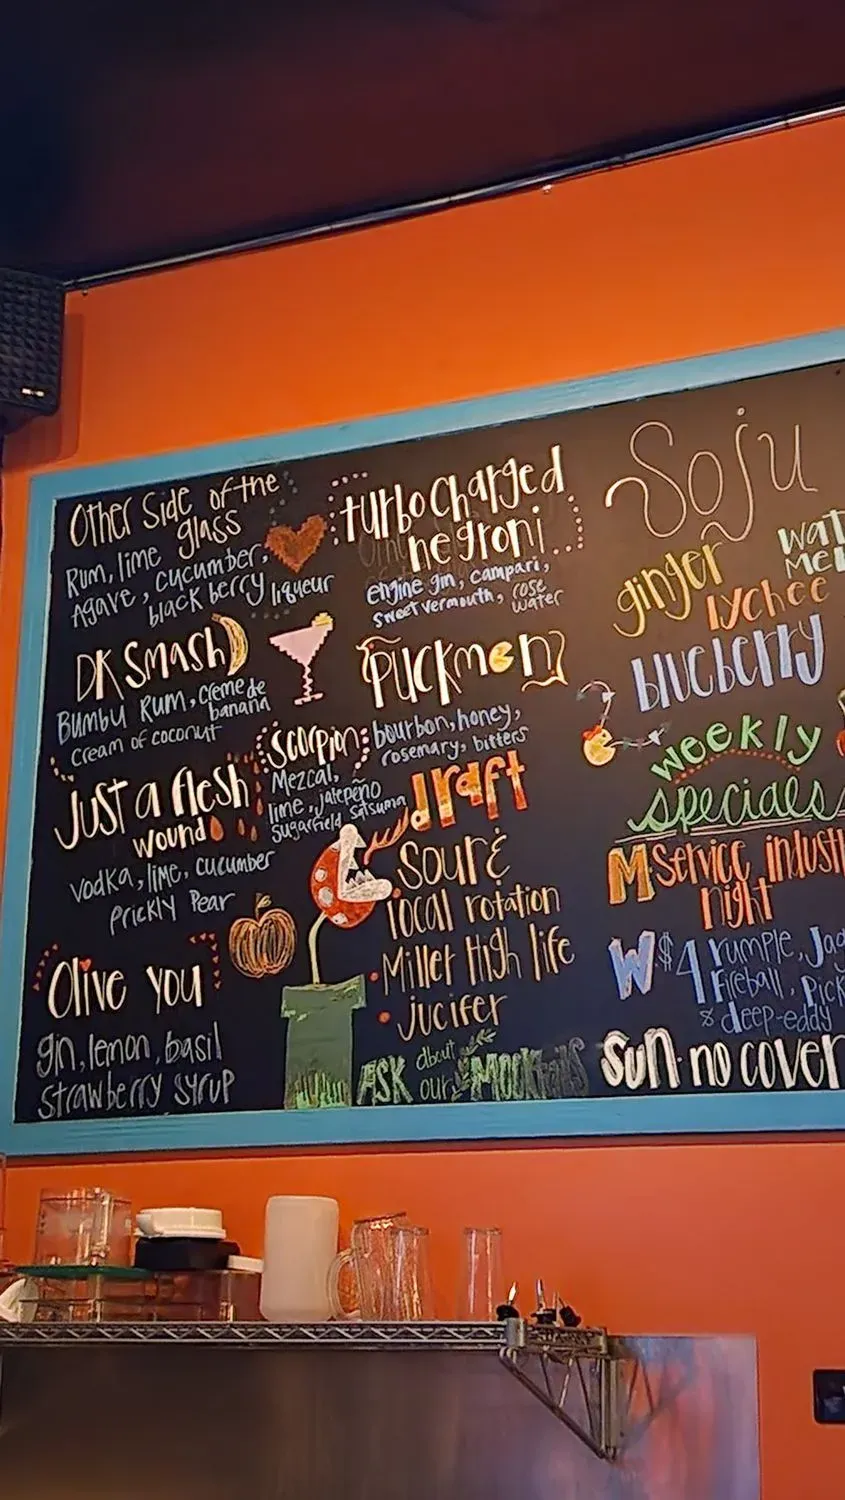 Other Side of the
glass
Rum, lime
Agave, cucumber,
black berry liqueur
DK Smash
Bumbu Rum, creme de
banana
cream of coconut
Just a flesh
wound
vodka, lime, cucumber
prickly pear
Olive you
gin, lemon, basil
strawberry syrup
turbocharged
negroni
engine gin, campari,
sweet vermouth, rose
water
Puckmen
bourbon, honey,
rosemary, bitters
Scorpion
Mezcal,
lime, jalepeño
sugarfield satsuma
draft
local rotation
Miller High life
jucifer
ASK about
our Mocktails
Soju
ginger
lychee
blueberry
weekly
specials
M Service
night
W $4 rumple,
fireball,
& deep-eddy
Sun. no cover